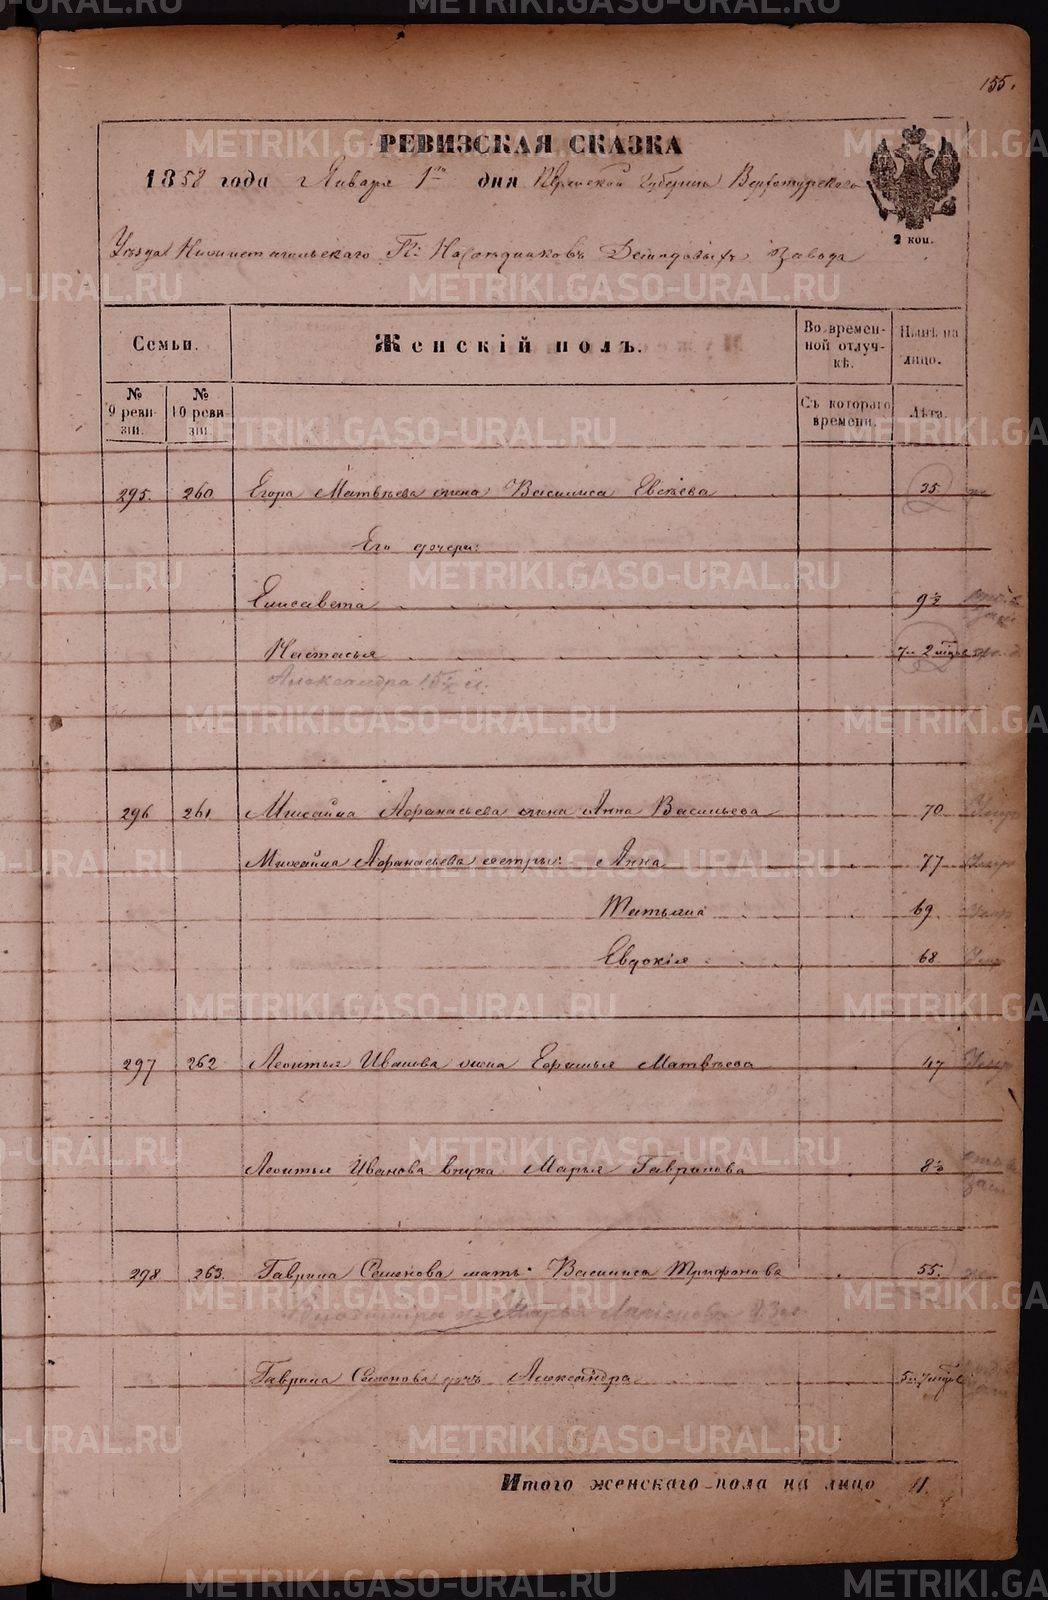 155.
РЕВИЗСКАЯ СКАЗКА
1858 года Января 1го дня Пермской Губернии Верхотурскаго
2 коп.
Уезда Нижнетагильскаго Гг. Наследниковъ Демидовыхъ Завода
Семьи.
Женскій полъ.
Во временной отлучкѣ.
Нынѣ на лицо.
№ 9 ревизіи.
№ 10 ревизіи
Съ котораго времени.
Лѣта.
295. 260 Егора Матвѣева жена Василиса Евсѣева 35
Его дочери:
Елисавета 9½
Настасья 7 л 2 мѣсяц
Александра 15½ л.
296 261 Михайла Афанасьева жена Анна Васильева 70
Михайла Афанасьева сестры: Анна 77
Татьяна 69
Евдокія 68
297 262 Леонтья Иванова жена Ефимья Матвѣева 47
Леонтья Иванова внука Марья Гаврилова 8½
298 263. Гаврила Семенова мать Василиса Трифонова 55.
Марья
Гаврила Семенова дочь Александра 5 л 7 мѣсяц
Итого женскаго пола на лицо 11.
METRIKI.GASO-URAL.RU